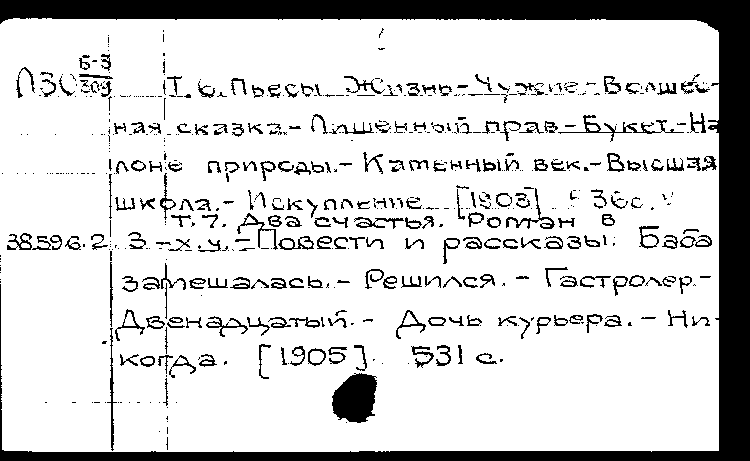 Л30 6-3/309 Т. 6. Пьесы Жизнь.- Чужие.- Волшеб-
ная сказка.- Лишенный прав.- Букет.- На
лоне природы.- Каменный век.- Высшая
школа.- Искупление [1903] 436с.
Т. 7. Два счастья. Роман в
38.59.6.2. 3-х.ч.- Повести и рассказы: Баба
замешалась.- Решился. - Гастролер.-
Двенадцатый.- Дочь курьера. - Ни-
когда. [1905]. 531 с.